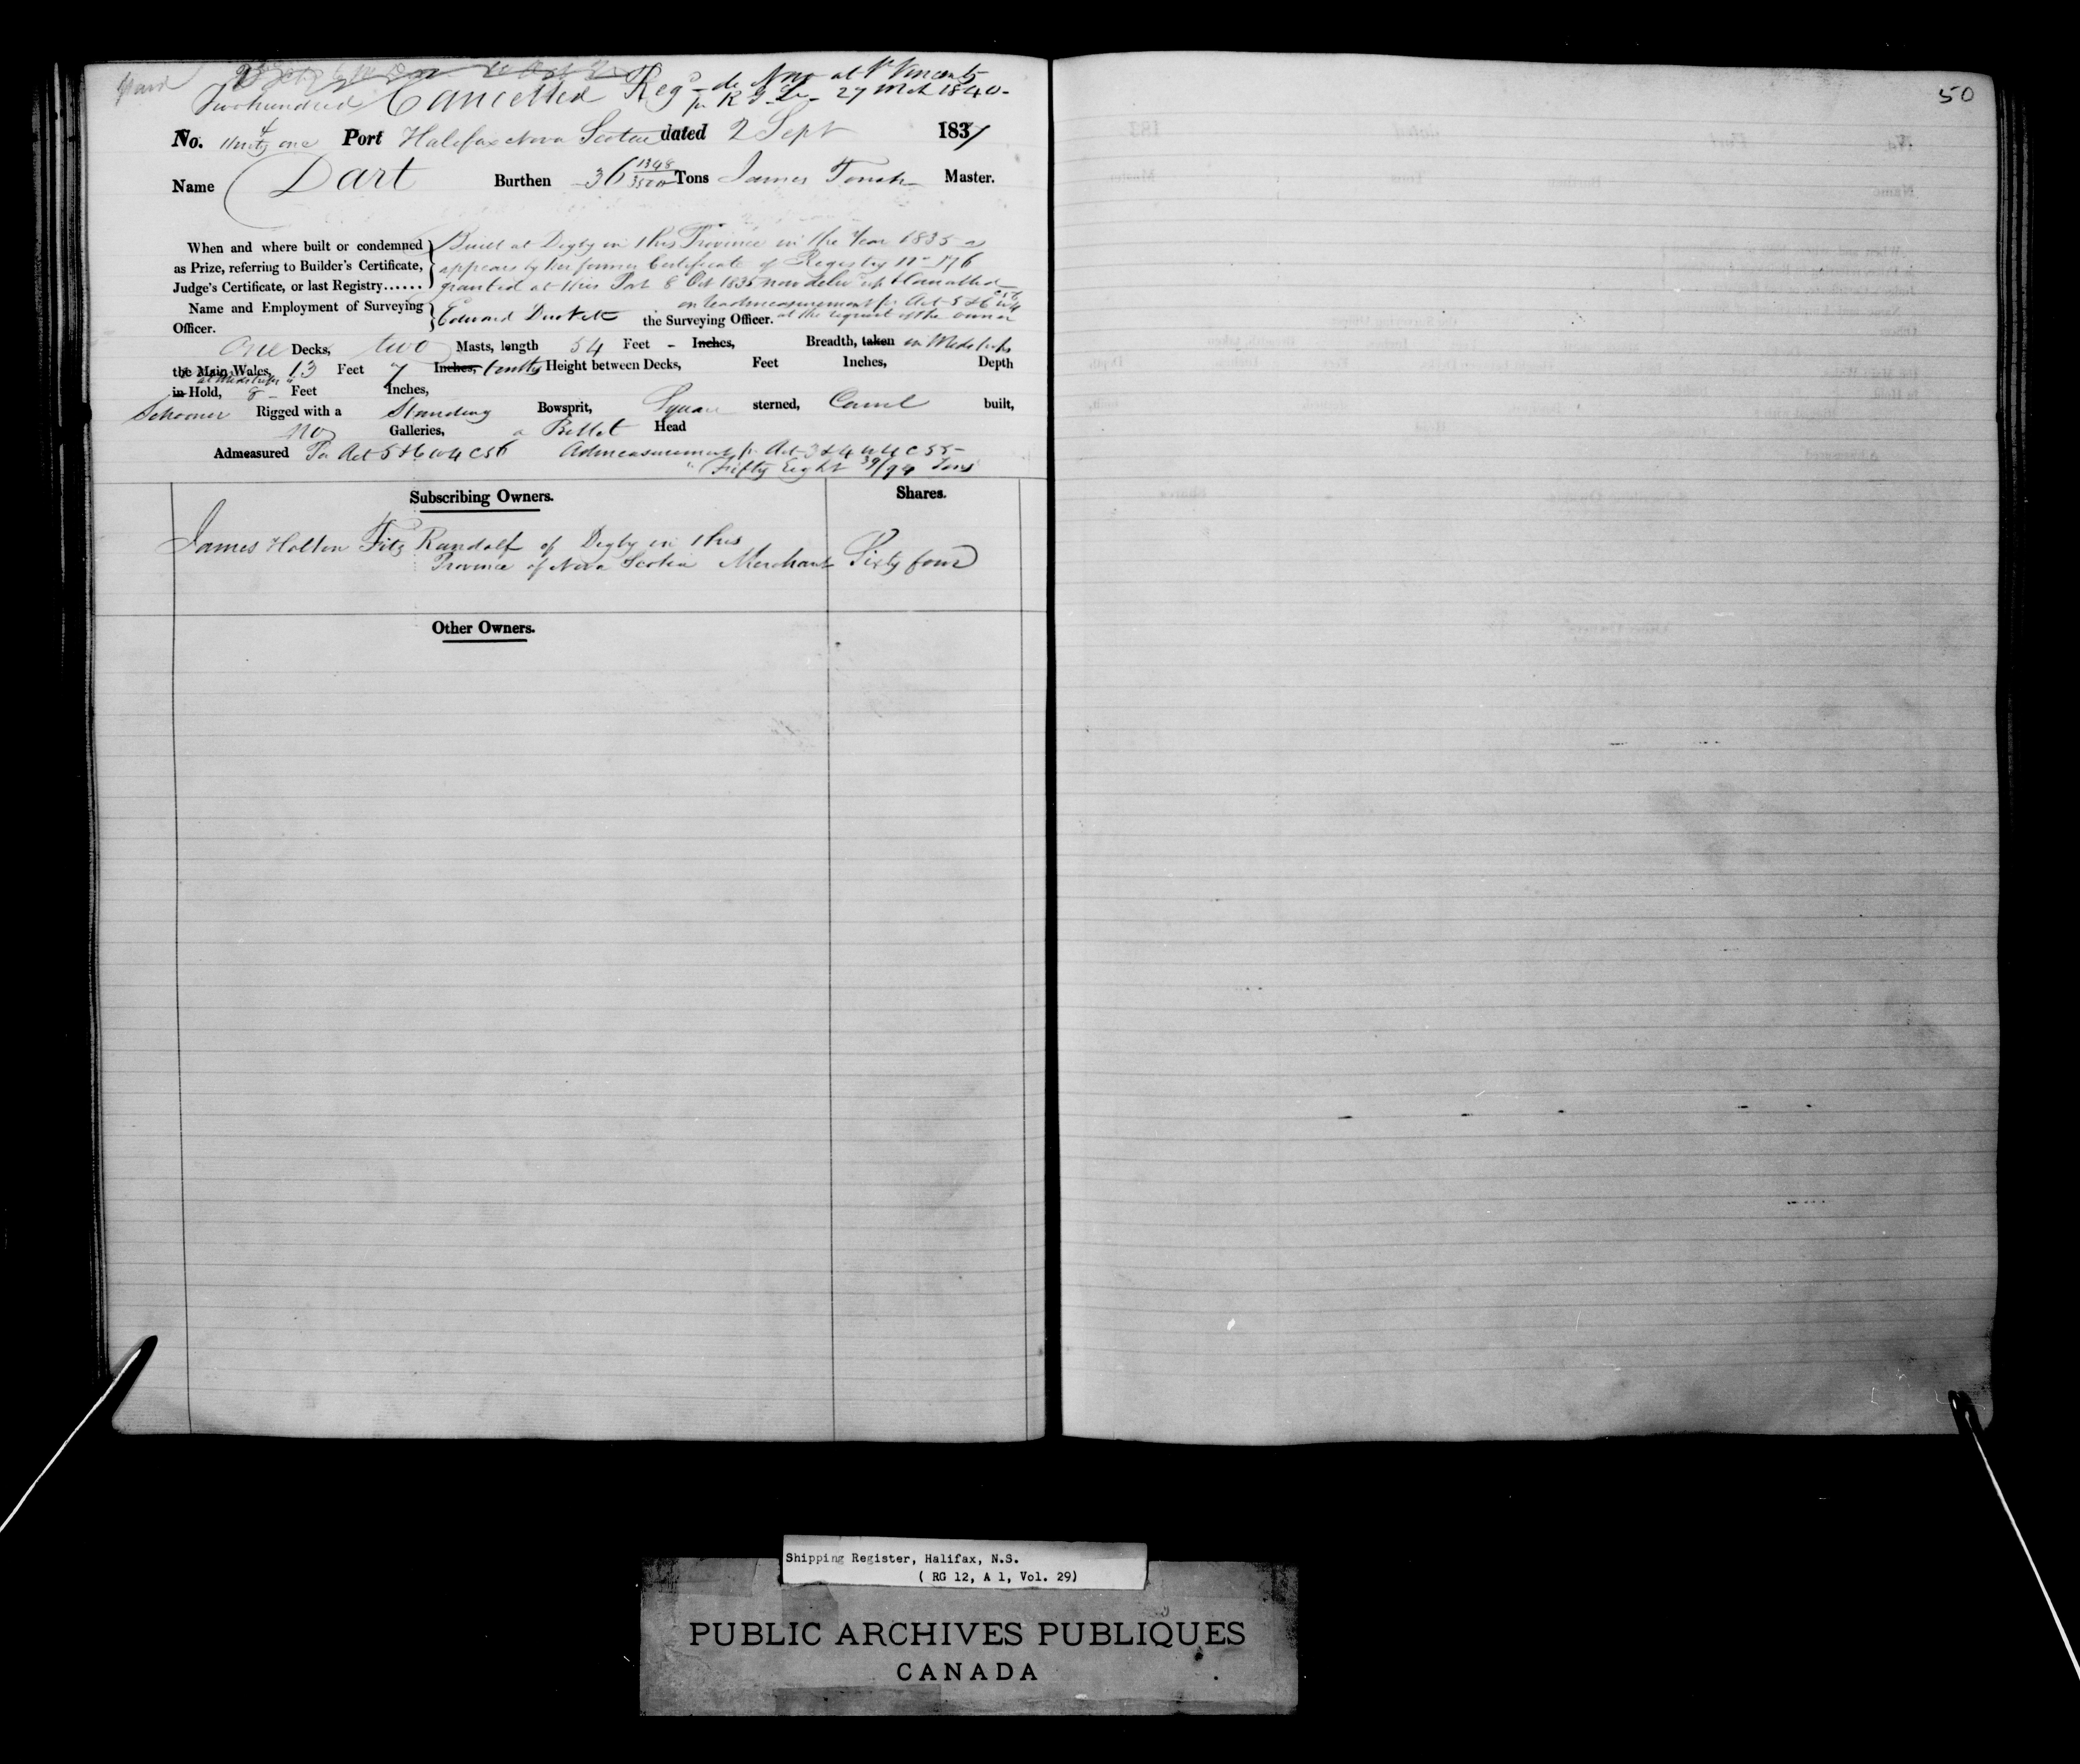 Cancelled Reg^d de Novo at St Vincents
pr R G Lr 27 Mch 1840.
Two hundred
No. & Ninety one Port Halifax Nova Scotia dated 2 Sept 1837
Name Dart Burthen 36 1348/3500 Tons James Master.
When and where built or condemned Built at Digby in this Province in the Year 1835 as
as Prize, referring to Builder's Certificate, appears by her former Certificate of Registry No 176
Judge's Certificate, or last Registry...... granted at this Port 8 Oct 1835 now deliv^d up & Cancelled
on readmeasurement pr Act 5 & 6 W 4 C 56
Name and Employment of Surveying Edward the Surveying Officer. at the request of the owner
Officer.
One Decks, two Masts, length 54 Feet - Inches, Breadth, taken in Midships
the Main Wales, 13 Feet 7 Inches, tenths Height between Decks, Feet Inches, Depth
at Midships
in Hold, 8 - Feet Inches,
Schooner Rigged with a Standing Bowsprit, Square sterned, Carvel built,
No Galleries, a Billet Head
Admeasured Per Act 5 & 6 W 4 C 56 Admeasurement pr Act 3 & 4 W 4 C 55 -
Fifty Eight 39/94 Tons
Subscribing Owners. Shares.
James Holton Fitz Randolf of Digby in this
Province of Nova Scotia Merchant Sixty four
Other Owners.
50
Shipping Register, Halifax, N.S.
( RG 12, A 1, Vol. 29)
PUBLIC ARCHIVES PUBLIQUES
CANADA